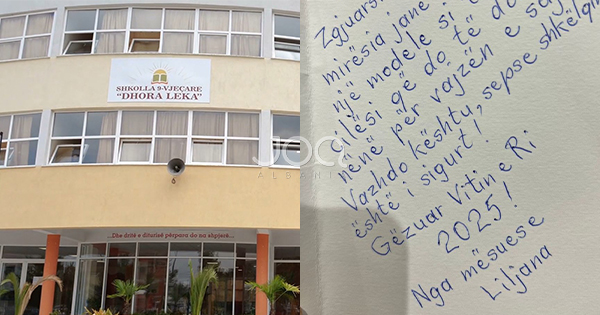 SHKOLLA 9-VJEÇARE
"DHORA LEKA"
...Dhe dritë e diturisë përpara do na shpjerë...
JOQ
ALBANIA
Zgjuarsi
mirësia janë
një modele si
cilësi që do të do
nënë për vajzën e saj
Vazhdo kështu, sepse shkëlqim
është i sigurt!
Gëzuar Vitin e Ri
2025!
Nga mësuese
Liljana